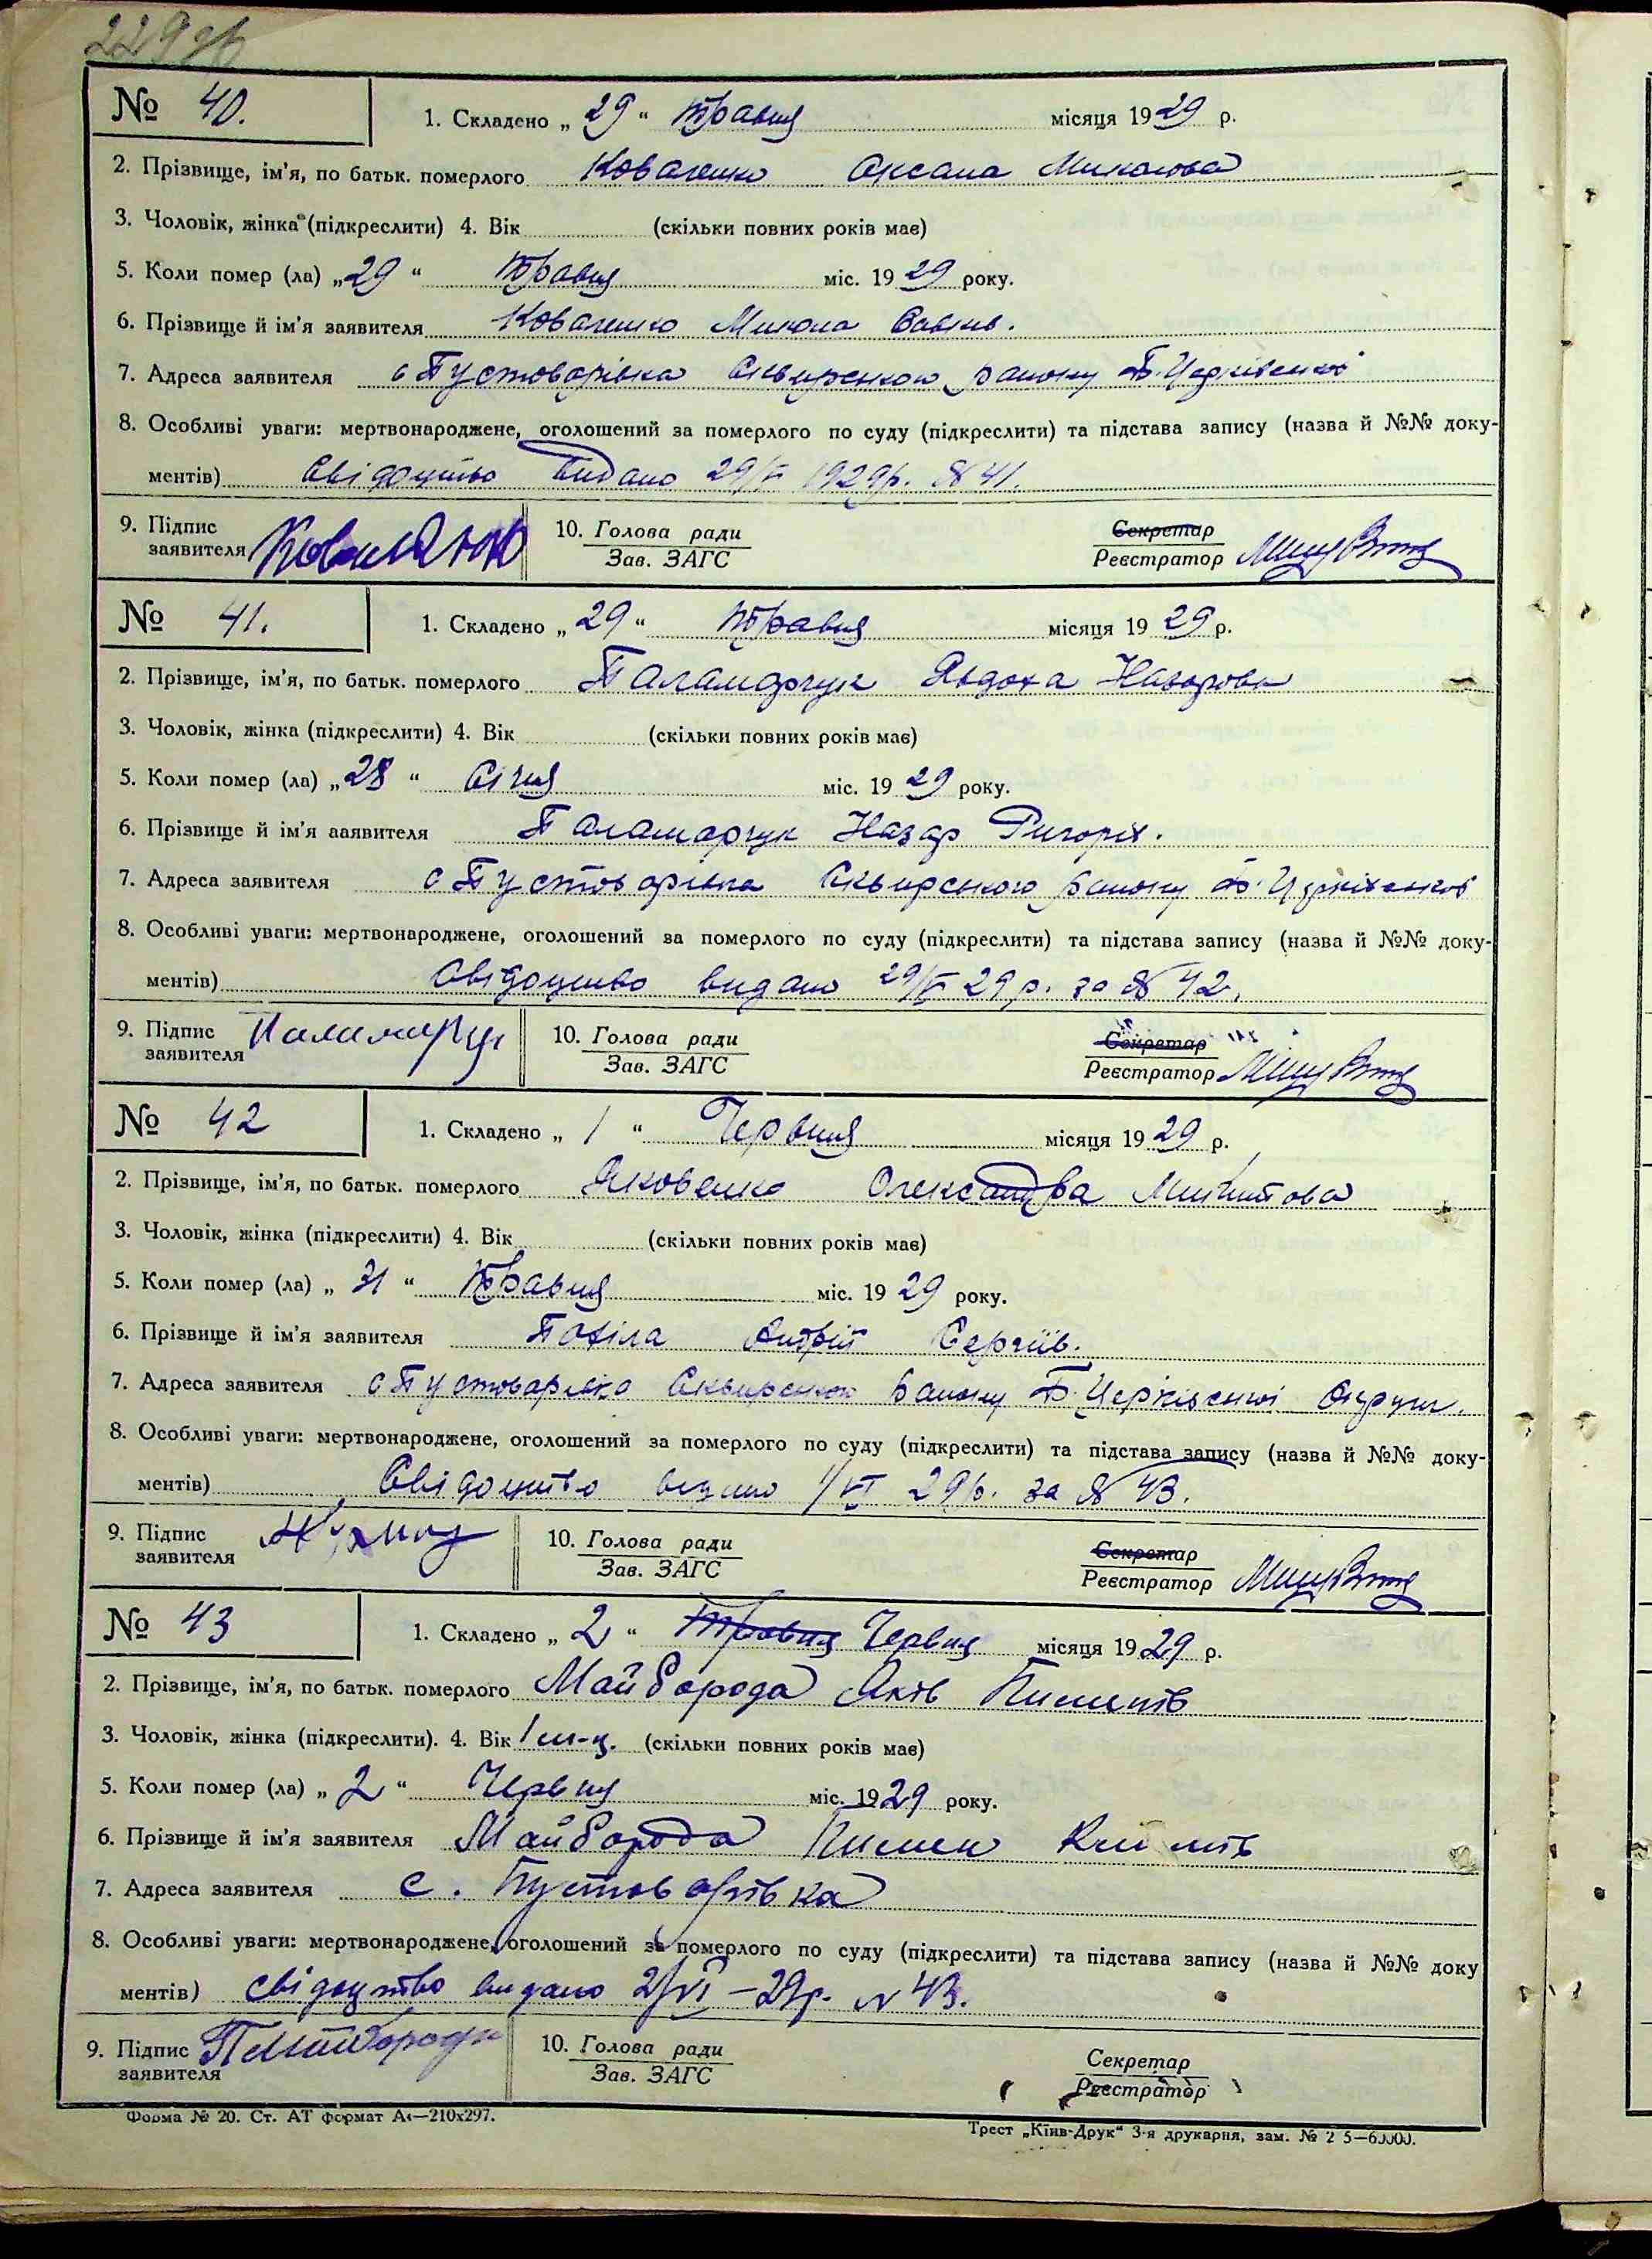 229зв
№ 40. 1. Складено „ 29 “ травня місяця 1929 р.
2. Прізвище, ім'я, по батьк. померлого Коваленко Оксана Миколова
3. Чоловік, жінка (підкреслити) 4. Вік (скільки повних років має)
5. Коли помер (ла) „ 29 “ травня міс. 1929 року.
6. Прізвище й ім'я заявителя Коваленко Микола Савків.
7. Адреса заявителя с Пустоварівка Сквирського району Б. Церківської
8. Особливі уваги: мертвонароджене, оголошений за померлого по суду (підкреслити) та підстава запису (назва й №№ доку-
ментів) Свідоцтво видано 29/V 1929р. № 41.
9. Підпис заявителя Коваленко 10. Голова ради Секретар
Зав. ЗАГС Реєстратор
№ 41. 1. Складено „ 29 “ травня місяця 1929 р.
2. Прізвище, ім'я, по батьк. померлого Паламарчук Явдоха Назарова
3. Чоловік, жінка (підкреслити) 4. Вік (скільки повних років має)
5. Коли помер (ла) „ 28 “ Січня міс. 1929 року.
6. Прізвище й ім'я ааявителя Паламарчук Назар Ригорів.
7. Адреса заявителя с Пустоварівка Сквирського району Б. Церківської
8. Особливі уваги: мертвонароджене, оголошений за померлого по суду (підкреслити) та підстава запису (назва й №№ доку-
ментів) Свідоцтво видано 29/V 29 р. за № 42.
9. Підпис заявителя Паламарчук 10. Голова ради Секретар
Зав. ЗАГС Реєстратор
№ 42 1. Складено „ 1 “ Червня місяця 1929 р.
2. Прізвище, ім'я, по батьк. померлого Яковенко Олександра
3. Чоловік, жінка (підкреслити) 4. Вік (скільки повних років має)
5. Коли помер (ла) „ 31 “ травня міс. 1929 року.
6. Прізвище й ім'я заявителя Похіла Андрій Сергіїв.
7. Адреса заявителя с Пустоварівка Сквирського району Б. Церківської Округи.
8. Особливі уваги: мертвонароджене, оголошений за померлого по суду (підкреслити) та підстава запису (назва й №№ доку-
ментів) Свідоцтво видано 1/VI 29р. за № 43.
9. Підпис заявителя 10. Голова ради Секретар
Зав. ЗАГС Реєстратор
№ 43 1. Складено „ 2 “ Травня Червня місяця 1929 р.
2. Прізвище, ім'я, по батьк. померлого Майборода Яків Пименів
3. Чоловік, жінка (підкреслити). 4. Вік 1 м-ц. (скільки повних років має)
5. Коли помер (ла) „ 2 “ Червня міс. 1929 року.
6. Прізвище й ім'я заявителя Майборода Пимен
7. Адреса заявителя с. Пустоварівка
8. Особливі уваги: мертвонароджене, оголошений за померлого по суду (підкреслити) та підстава запису (назва й №№ доку
ментів) свідоцтво видано 2/VI - 29р. № 43.
9. Підпис заявителя П Майборода 10. Голова ради Секретар
Зав. ЗАГС Реєстратор
Форма № 20. Ст. АТ формат А4—210x297.
Трест „Київ-Друк“ 3-я друкарня, зам. №